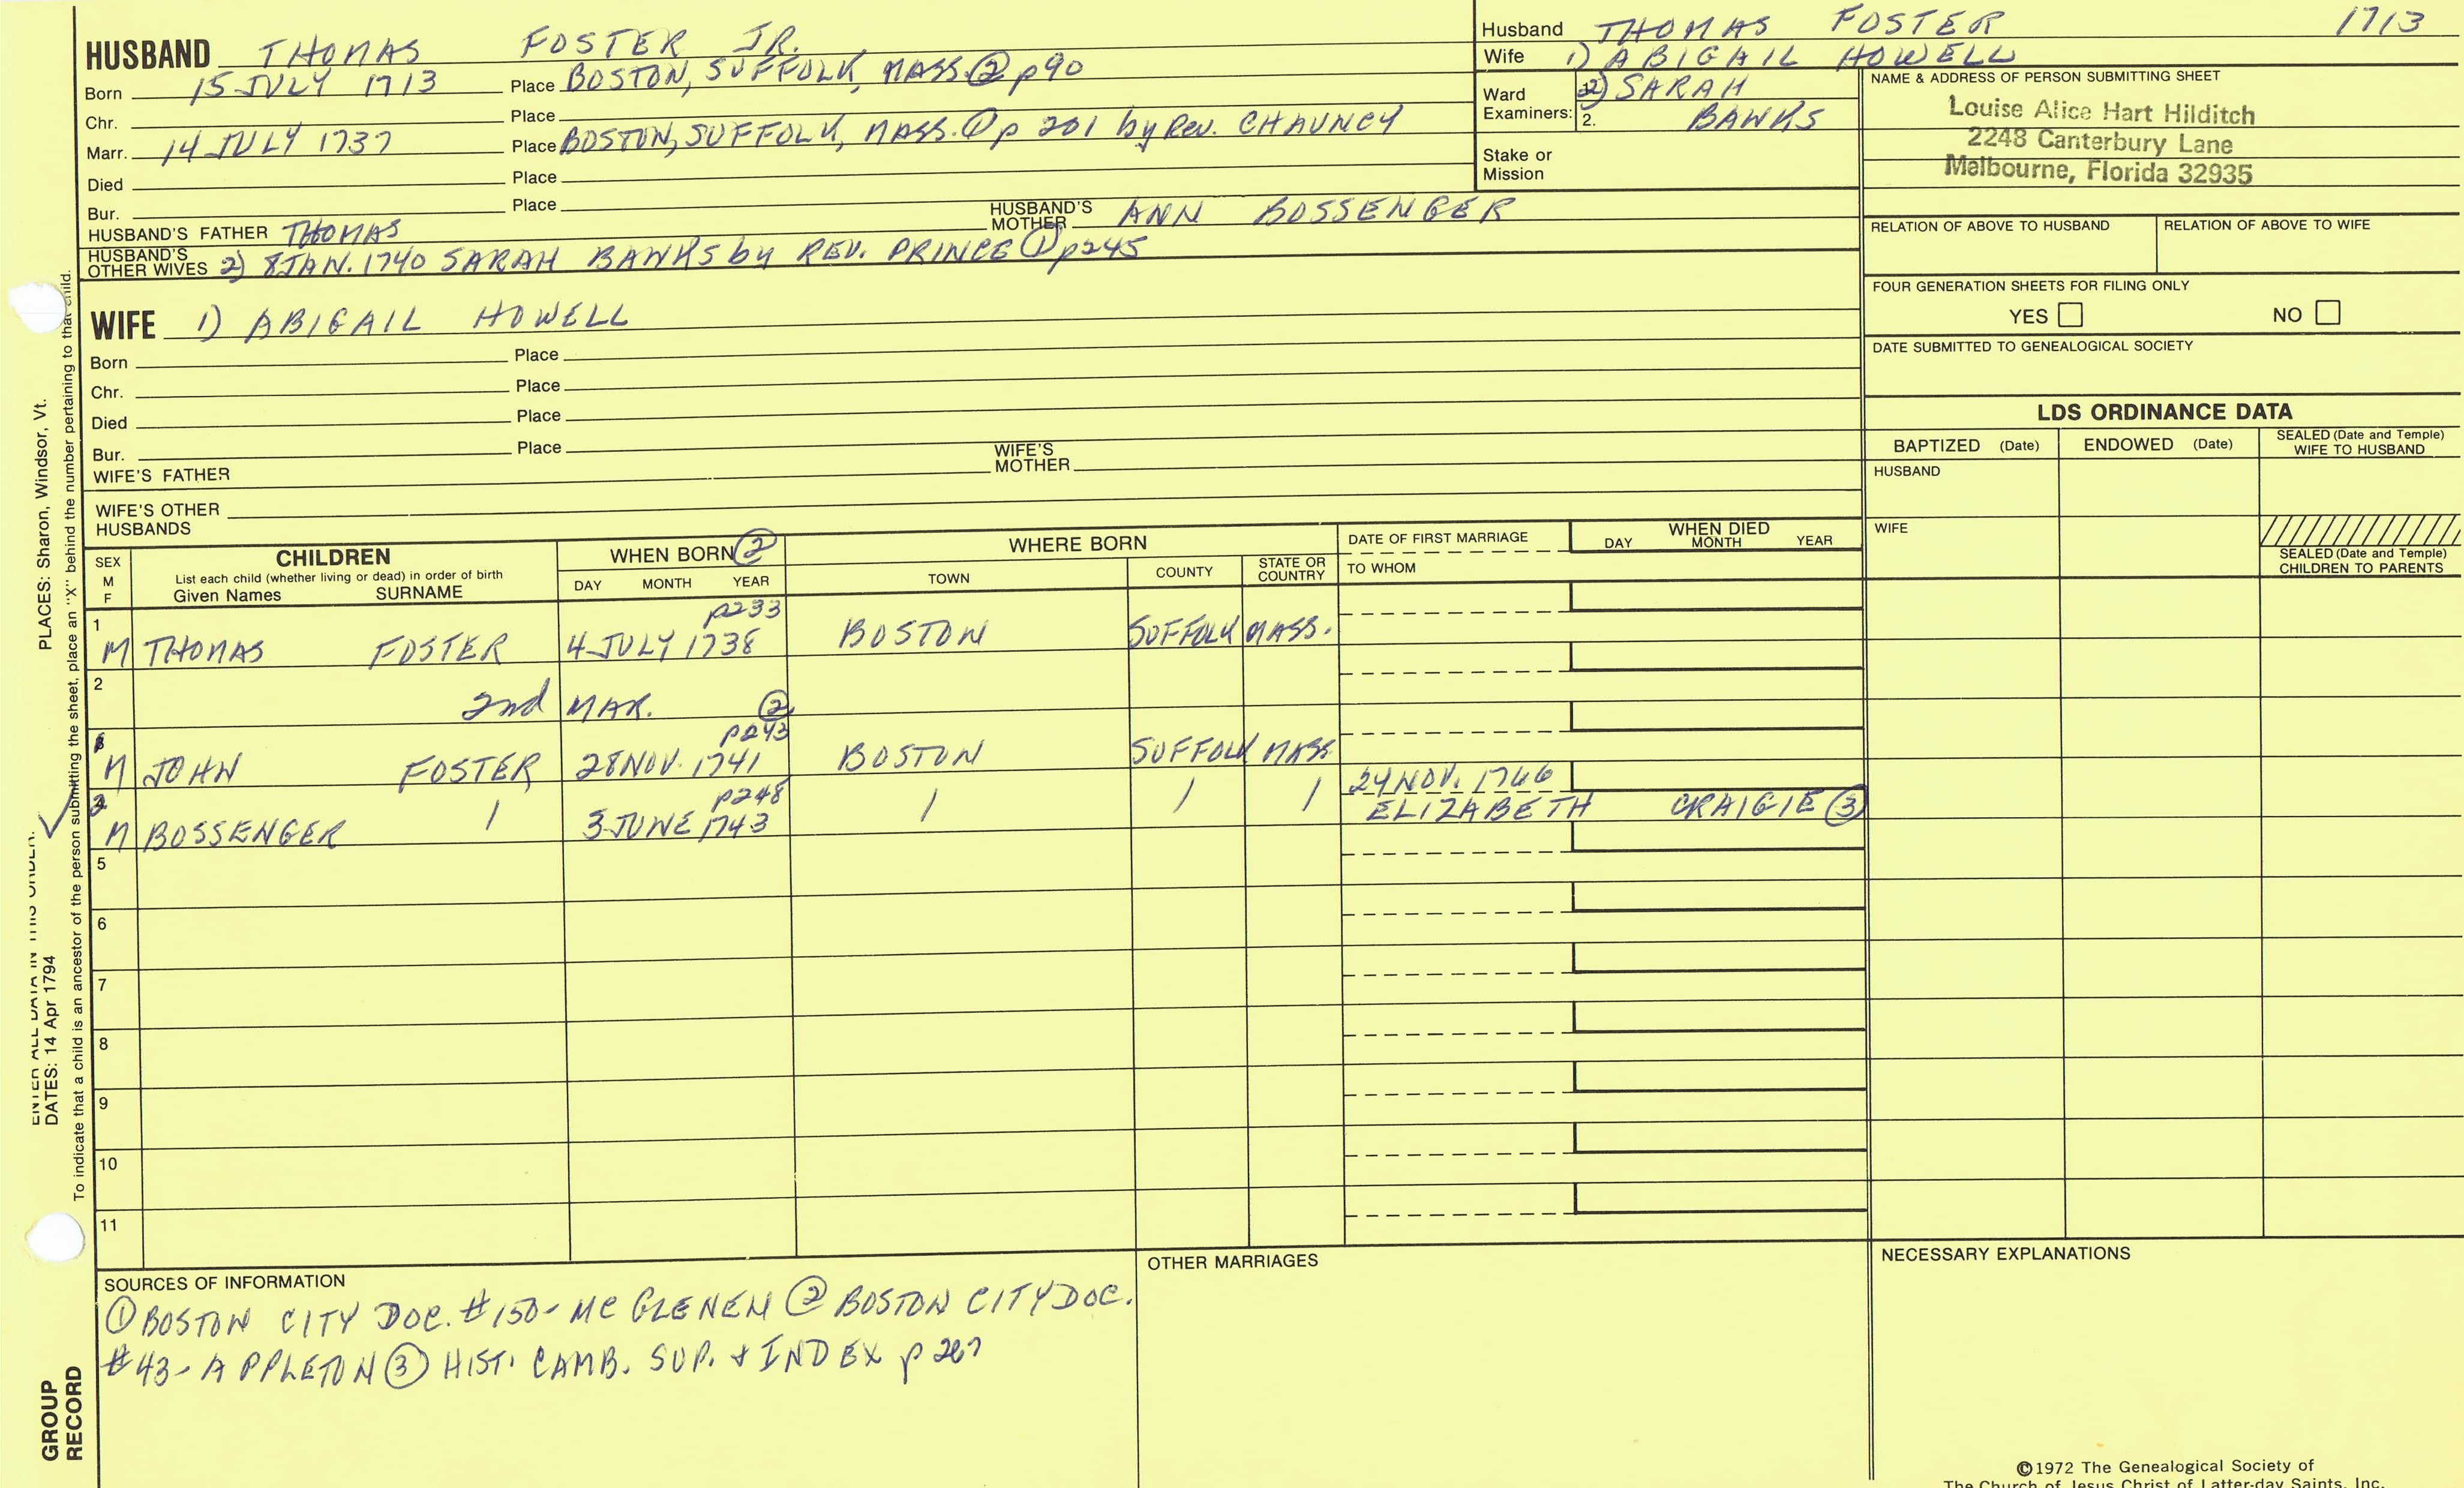 HUSBAND THOMAS FOSTER JR.
Born 15 JULY 1713 Place BOSTON, SUFFOLK, MASS. ② p90
Chr. Place
Marr. 14 JULY 1737 Place BOSTON, SUFFOLK, MASS. ① p 201 by Rev. CHAUNCY
Died Place
Bur. Place
HUSBAND'S FATHER THOMAS HUSBAND'S MOTHER ANN BOSSENGER
HUSBAND'S OTHER WIVES 2) 8 JAN. 1740 SARAH BANKS by REV. PRINCE ① p245
Husband THOMAS FOSTER 1713
Wife 1) ABIGAIL HOWELL
Ward 2) SARAH
Examiners: 2. BANKS
Stake or
Mission
NAME & ADDRESS OF PERSON SUBMITTING SHEET
Louise Alice Hart Hilditch
2248 Canterbury Lane
Melbourne, Florida 32935
RELATION OF ABOVE TO HUSBAND RELATION OF ABOVE TO WIFE
FOUR GENERATION SHEETS FOR FILING ONLY
YES NO
DATE SUBMITTED TO GENEALOGICAL SOCIETY
WIFE 1) ABIGAIL HOWELL
Born Place
Chr. Place
Died Place
Bur. Place
WIFE'S FATHER WIFE'S MOTHER
WIFE'S OTHER
HUSBANDS
LDS ORDINANCE DATA
BAPTIZED (Date) ENDOWED (Date) SEALED (Date and Temple)
WIFE TO HUSBAND
HUSBAND
WIFE
SEALED (Date and Temple)
CHILDREN TO PARENTS
SEX
M
F
CHILDREN
List each child (whether living or dead) in order of birth
Given Names SURNAME
WHEN BORN ②
DAY MONTH YEAR
WHERE BORN
TOWN COUNTY STATE OR COUNTRY
DATE OF FIRST MARRIAGE
TO WHOM
WHEN DIED
DAY MONTH YEAR
1 p233
M THOMAS FOSTER 4 JULY 1738 BOSTON SUFFOLK MASS.
2
2nd MAR. ②
p243
M JOHN FOSTER 28 NOV. 1741 BOSTON SUFFOLK MASS
p248 24 NOV. 1766
M BOSSENGER 3 JUNE 1743 ELIZABETH CRAIGIE ③
5
6
7
8
9
10
11
SOURCES OF INFORMATION
① BOSTON CITY DOC. #150- MC GLENEN ② BOSTON CITY DOC.
#43- APPLETON ③ HIST. CAMB. SUP. + INDEX p
OTHER MARRIAGES
NECESSARY EXPLANATIONS
©1972 The Genealogical Society of
The Church of Jesus Christ of Latter-day Saints, Inc.
PLACES: Sharon, Windsor, Vt.
ENTER ALL DATA IN THIS ORDER:
DATES: 14 Apr 1794
To indicate that a child is an ancestor of the person submitting the sheet, place an "X" behind the number pertaining to that child.
GROUP
RECORD